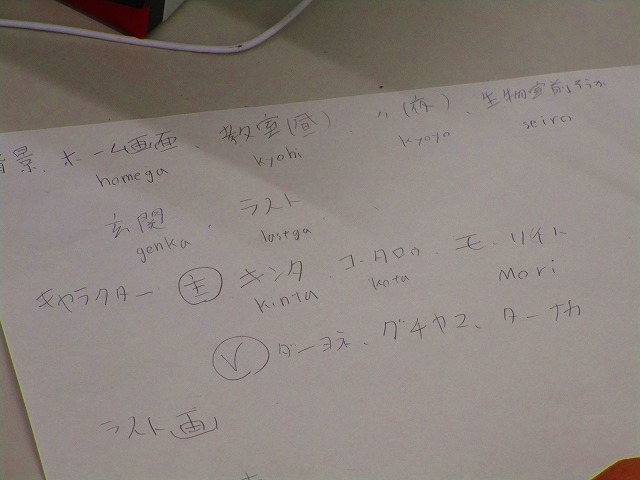 背景、ホーム画面、教室(昼) 〃(夜)、生物室前
homega kyohi kyoyo seiro
玄関、ラスト
genka lastga
キャラクター ㊤ キンタ、コータロウ
kinta kota Mori
Ⓥ ダーヨネ、グチヤマ、ターナカ
ラスト画